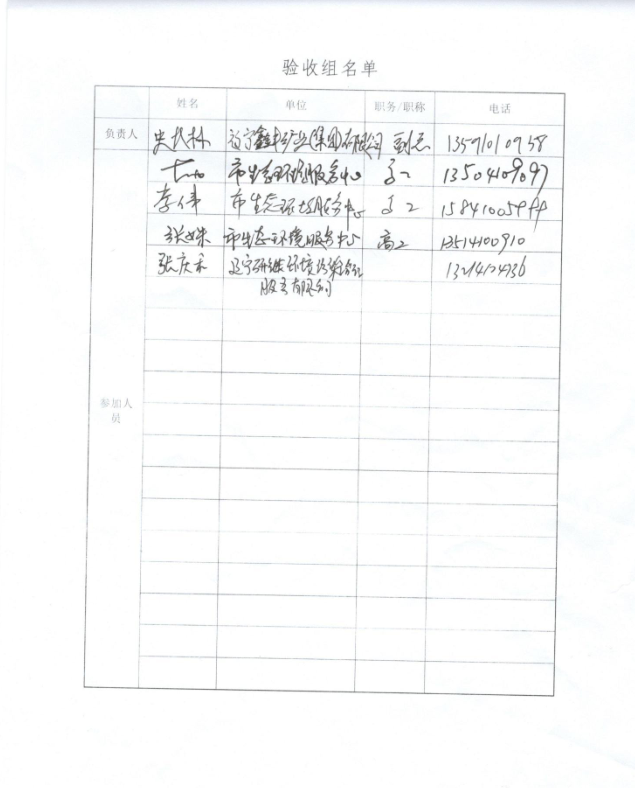 验收组名单
姓名 单位 职务/职称 电话
负责人 史长林 辽宁鑫丰矿业(集团)有限公司 副总
市生态环境服务中心 高工 13504109097
李伟 市生态环境服务中心 高工
张姝 市生态环境服务中心 高工 13514100910
张庆禾 辽宁 环境污染治理
服务有限公司
参加人
员